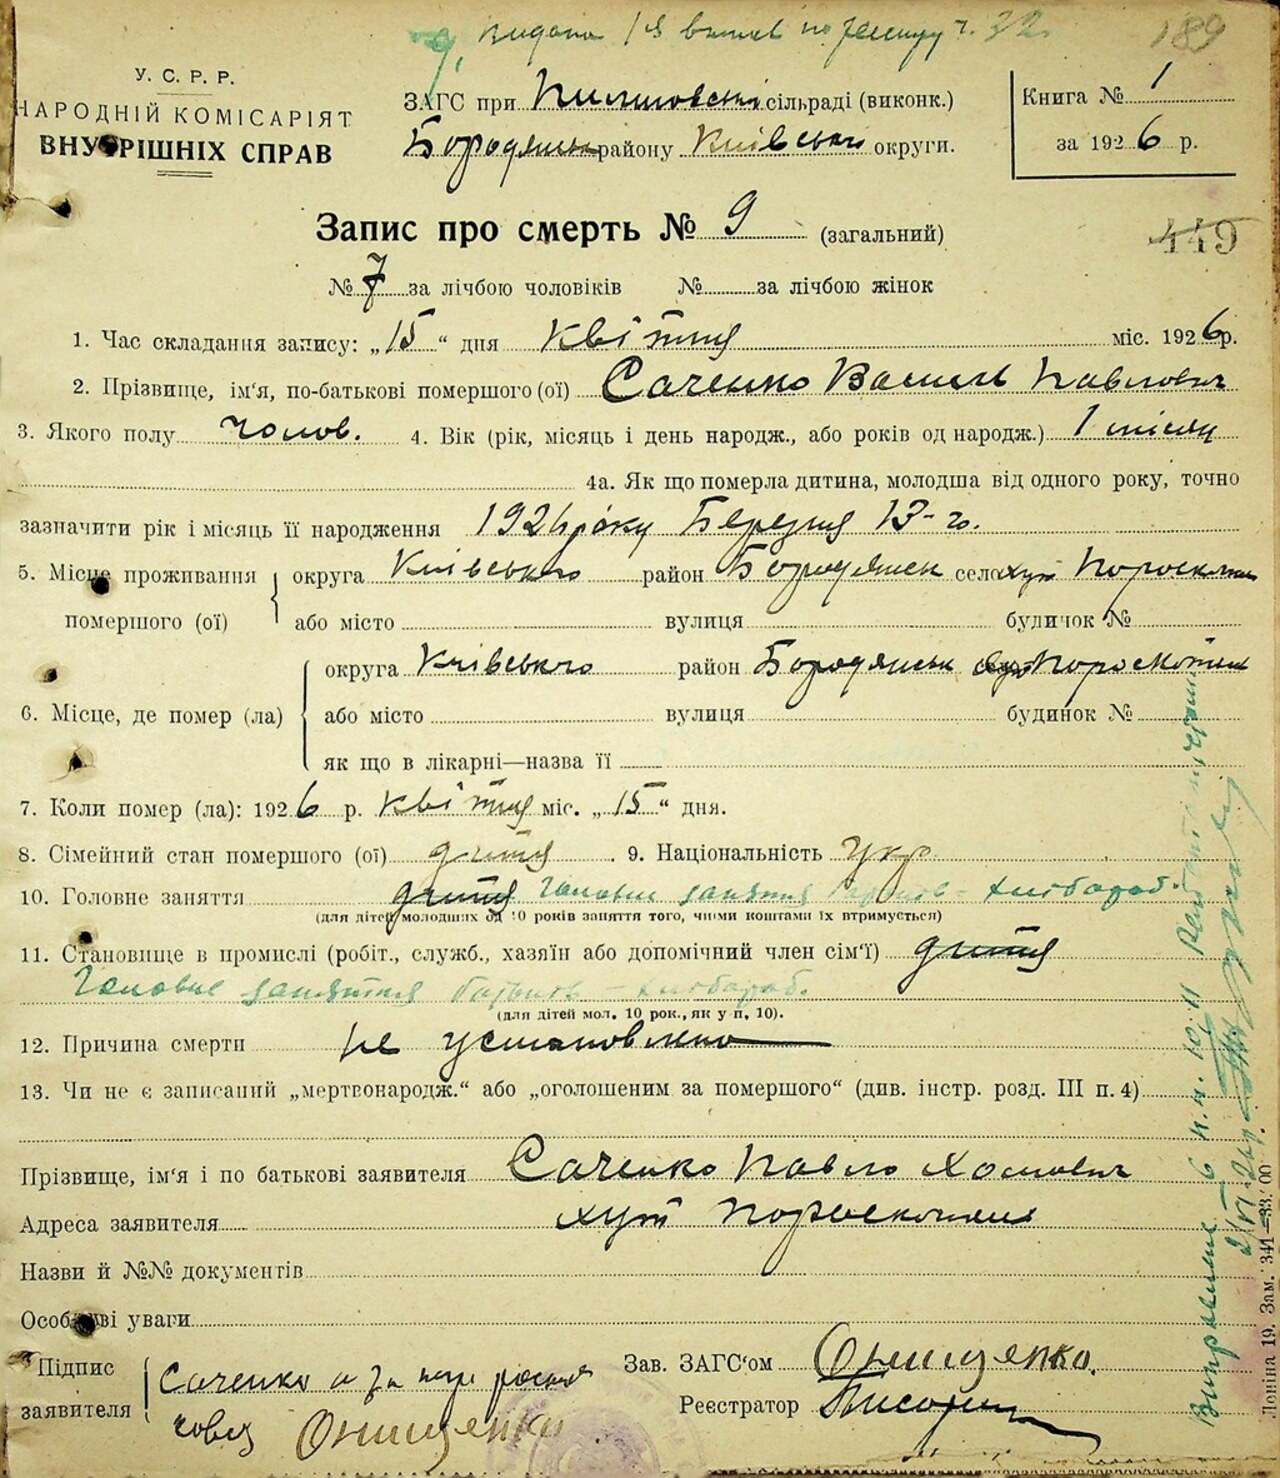 189
У. С. Р. Р.
НАРОДНІЙ КОМІСАРІЯТ
ВНУТРІШНІХ СПРАВ
ЗАГС при сільраді (виконк.)
Бородянськ району Київського округи.
Книга № 1
за 1926 р.
Запис про смерть № 9 (загальний)
449
№ 7 за лічбою чоловіків № за лічбою жінок
1. Час складання запису: „15“ дня квітня міс. 1926 р.
2. Прізвище, ім‘я, по-батькові помершого (ої) Саченко Василь Павлович
3. Якого полу чолов. 4. Вік (рік, місяць і день народж., або років од народж.) 1 місяц
4а. Як що померла дитина, молодша від одного року, точно
зазначити рік і місяць її народження 1926 року Березня 13-го.
5. Місце проживання помершого (ої) округа Київського район Бородянськ село хут Пороскотень
або місто вулиця будинок №
6. Місце, де помер (ла) округа Київського район Бородянськ хут Пороскотень
або місто вулиця будинок №
як що в лікарні—назва її
7. Коли помер (ла): 1926 р. квітня міс. „15“ дня.
8. Сімейний стан помершого (ої) дитя 9. Національність укр
10. Головне заняття дитя Головне заняття батьків - хлібороб.
(для дітей молодших од 10 років заняття того, чиїми коштами їх втримується)
11. Становище в промислі (робіт., служб., хазяїн або допомічний член сім‘ї) дитя
Головне заняття батьків - хлібороб.
(для дітей мол. 10 рок., як у п. 10).
12. Причина смерти не установлено
13. Чи не є записаний „мертвонародж.“ або „оголошеним за помершого“ (див. інстр. розд. III п. 4)
Прізвище, ім‘я і по батькові заявителя Саченко Павло Хомович
Адреса заявителя хут Пороскотень
Назви й №№ документів
Особливі уваги
Підпис заявителя Саченко а за негр
Онищенко
Зав. ЗАГС‘ом Онищенко.
Реєстратор
Виправлене в п.п. 10, 11
Леніна 19. Зам. 341—33.00